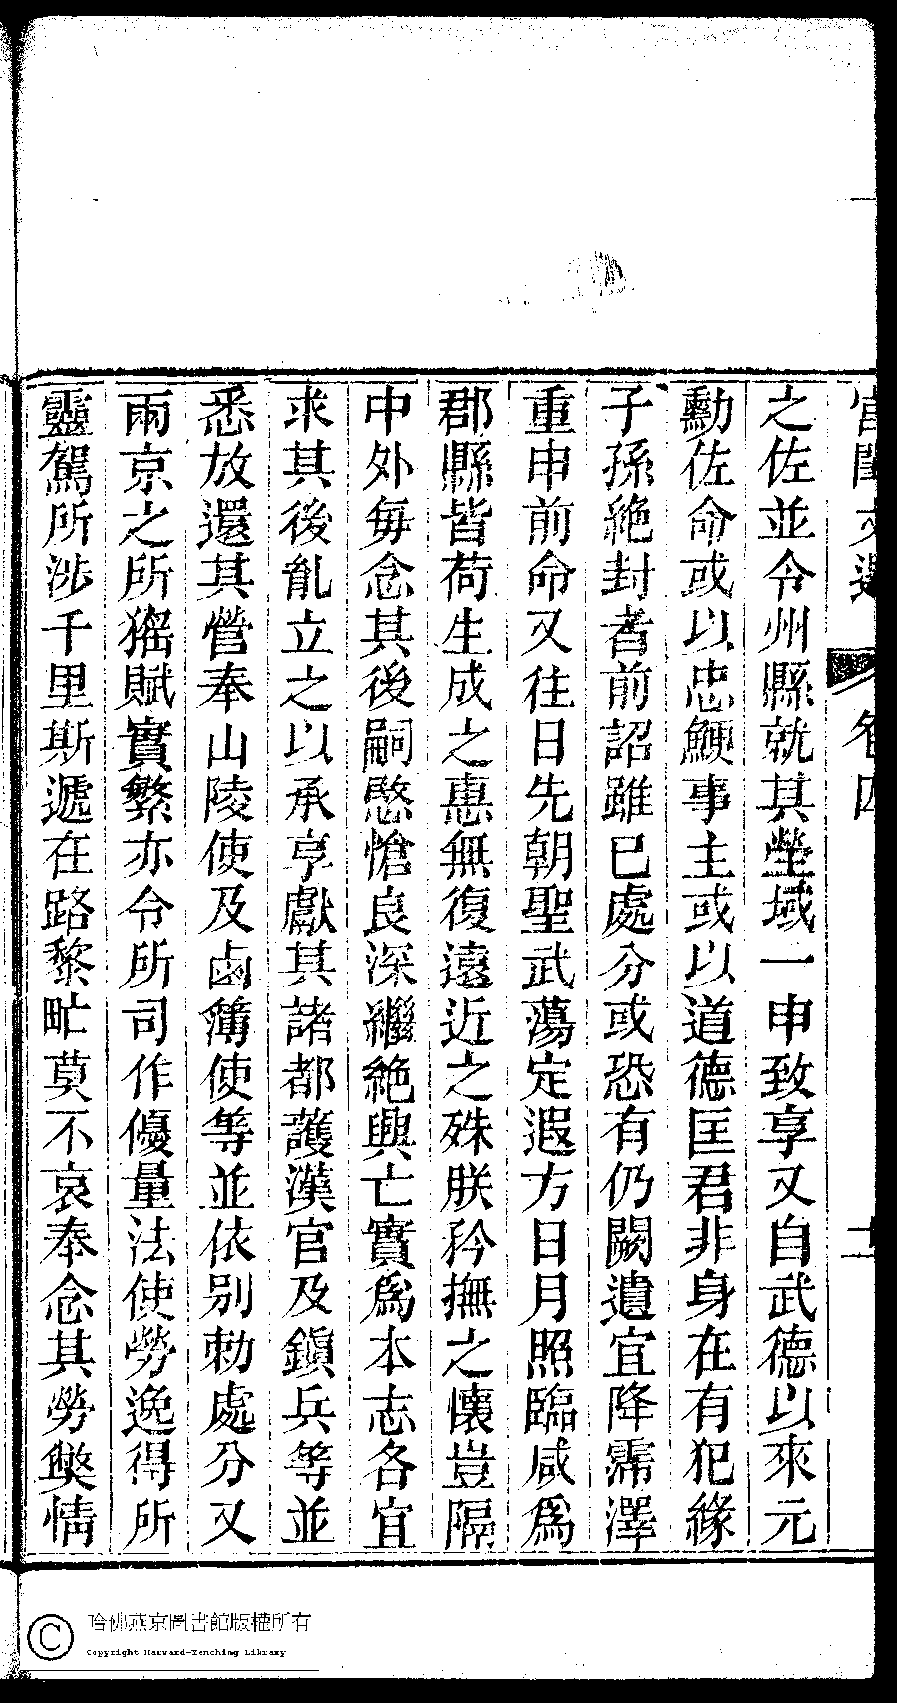 宮閨文選 卷四
之佐並令州縣就其塋域一申致享又自武德以來元
勳佐命或以忠鯁事主或以道德匡君非身在有犯緣
子孫絶封者前詔雖已處分或恐有仍闕遺宜降霈澤
重申前命又往日先朝聖武蕩定遐方日月照臨咸爲
郡縣皆荷生成之惠無復遠近之殊朕矜撫之懷豈隔
中外每念其後嗣愍愴良深繼絶興亡實爲本志各宜
求其後胤立之以承享獻其諸都護漢官及鎭兵等並
悉放還其營奉山陵使及鹵簿使等並依別勅處分又
兩京之所猺賦實繁亦令所司作優量法使勞逸得所
靈駕所涉千里斯遞在路黎甿莫不哀奉念其勞獘情
哈佛燕京圖書館版權所有
Copyright Harvard-Yenching Library